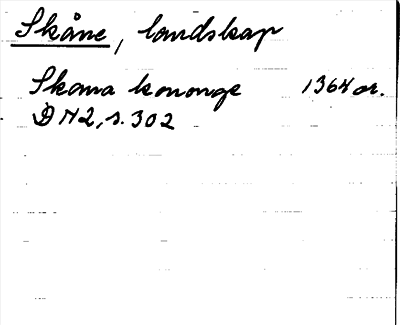 Skåne, landskap
Skana kononge 1364 or.
DN2, s. 302